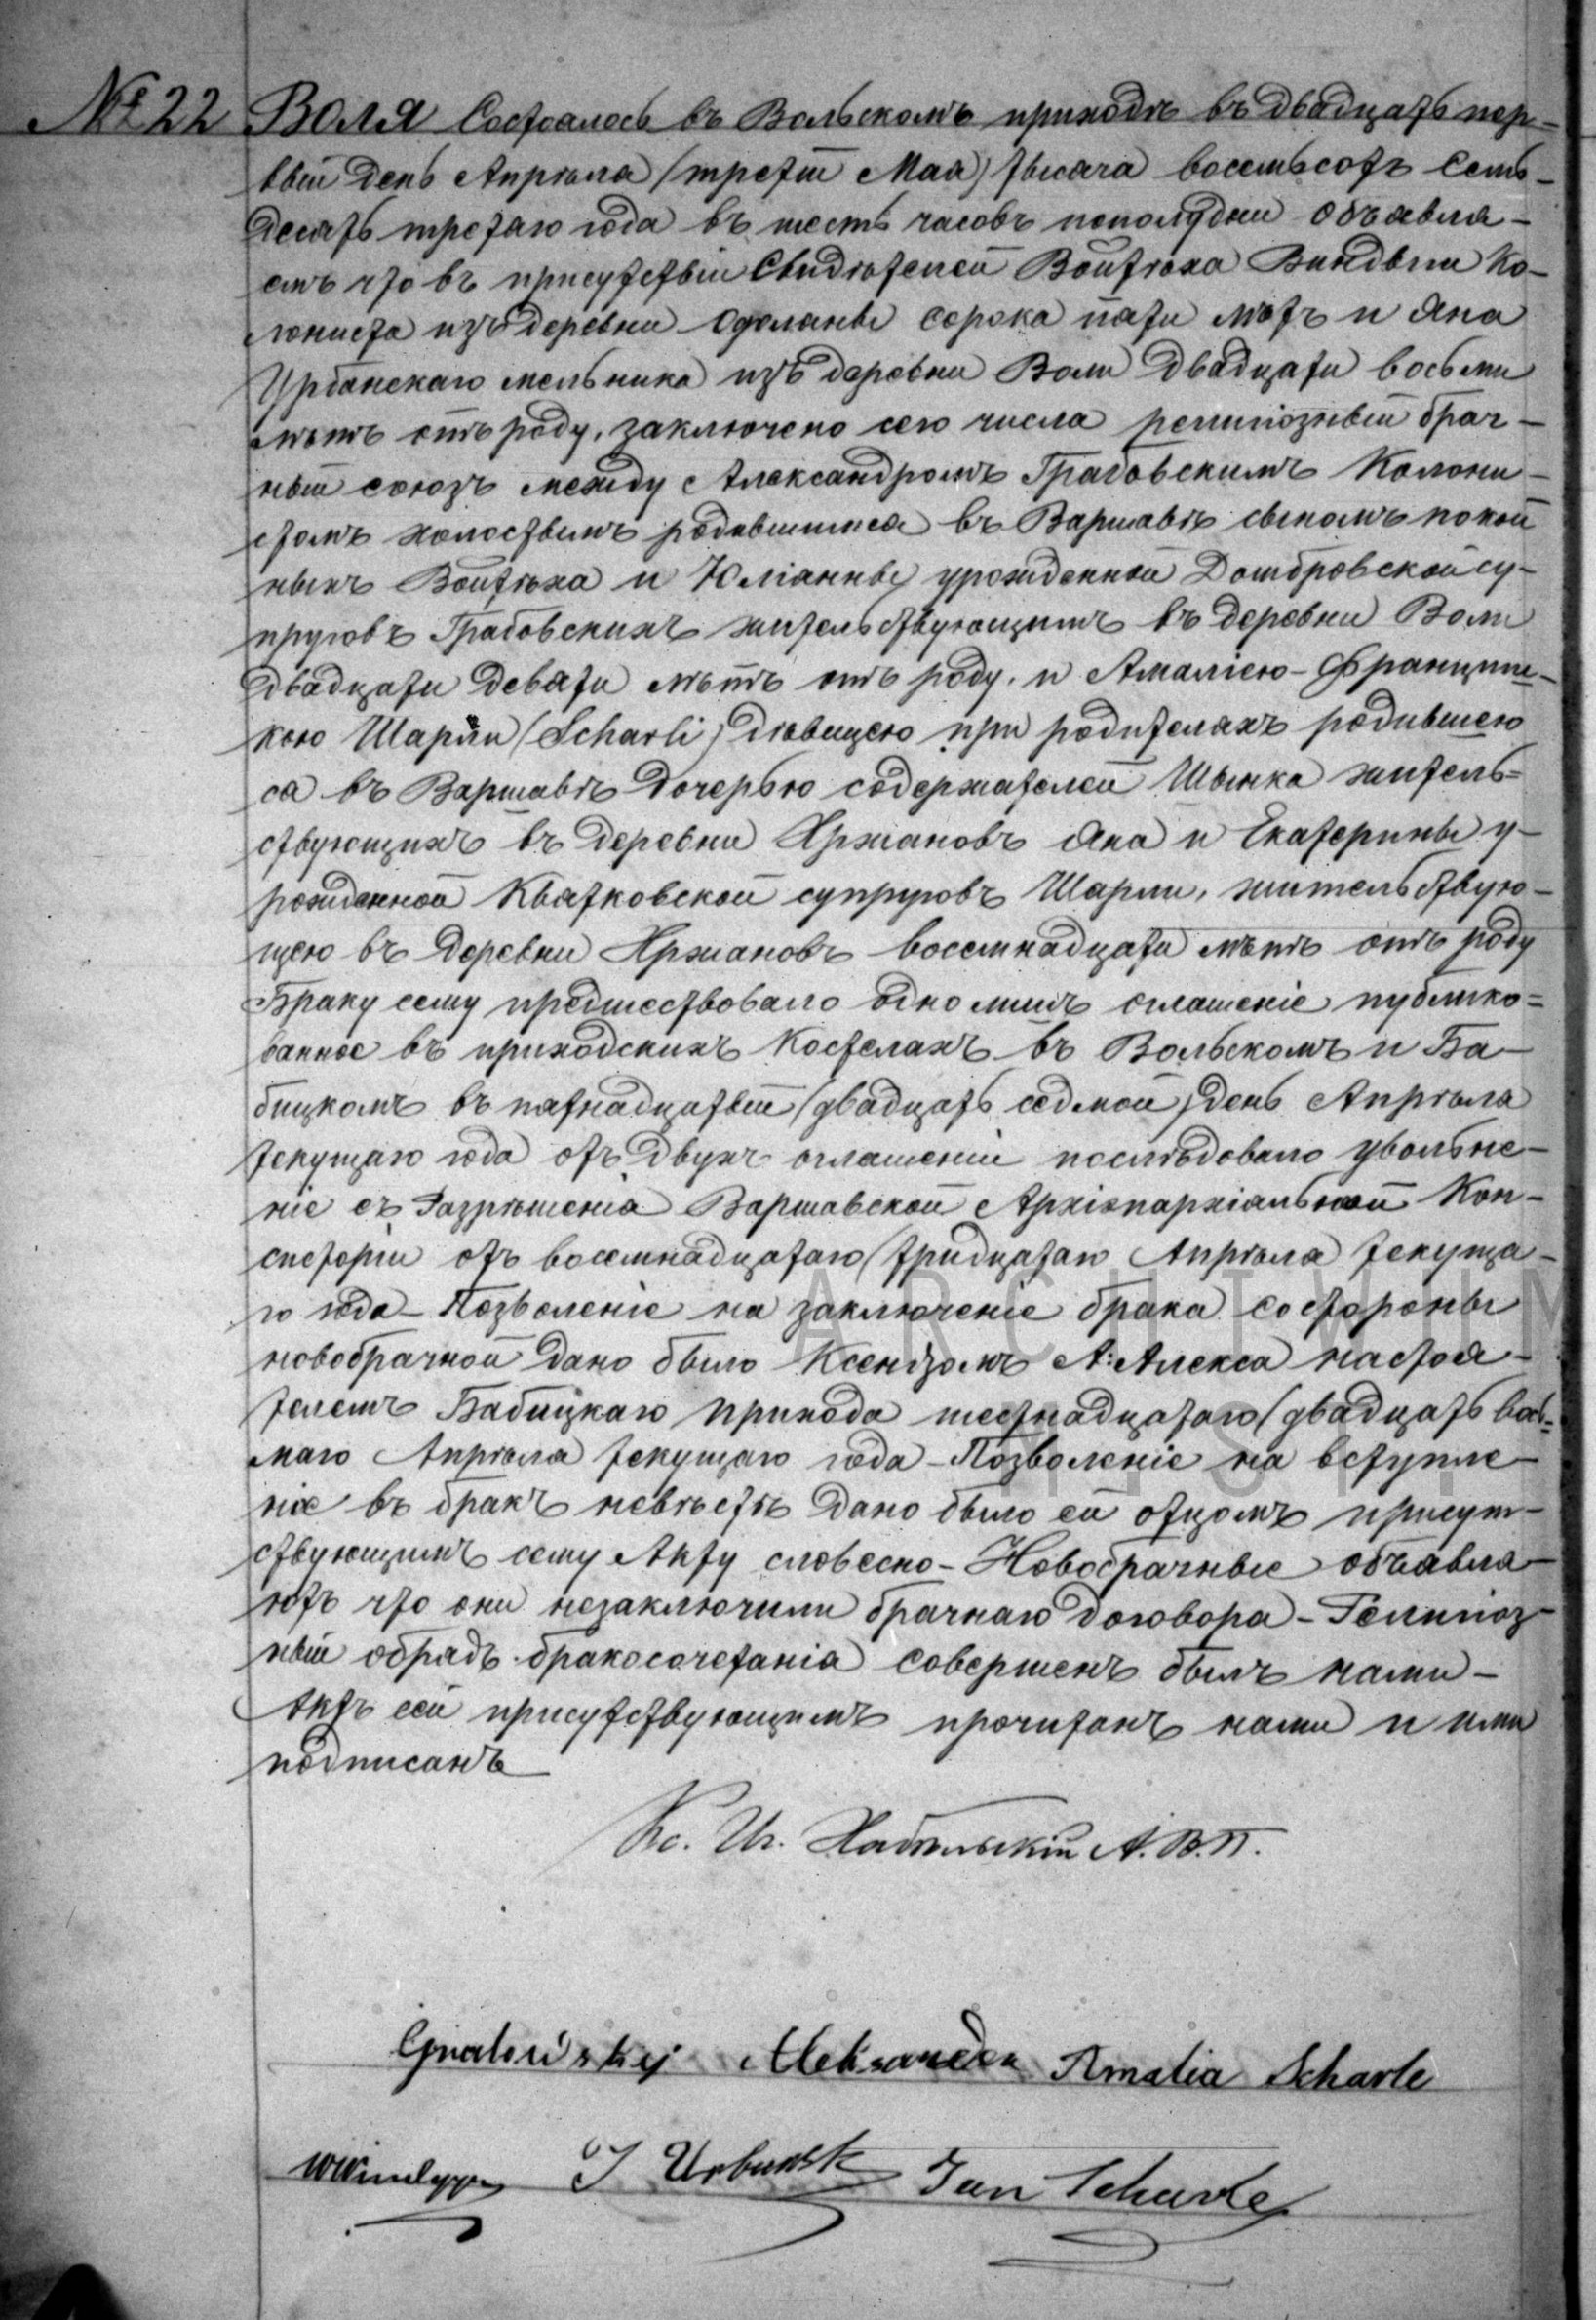 № 22 Воля Состоялось въ Вольскомъ приходѣ въ двадцать пер-
вый день Апрѣля (третій Мая) тысяча восемьсотъ семь-
десятъ третяго года въ шесть часовъ пополудни Объявля-
емъ что въ присутствіи Свидѣтелей Войтѣха Виндыги Ко-
лониста изъ деревни Одоляны сорока пяти лѣтъ и Яна
Урбанскаго мельника изъ деревни Воли двадцати восьми
лѣтъ отъ роду, заключено сего числа религіозный брач-
ный союзъ между Александромъ Грабовскимъ Колони-
стомъ холостымъ родившимся въ Варшавѣ сыномъ покой
ныхъ Войтѣха и Юліанны урожденной Домбровской су-
пруговъ Грабовскихъ жительствующимъ въ деревни Воли
двадцати девяти лѣтъ отъ роду, и Амаліею-Францише-
кою Шарли (Scharli) дѣвицею при родителяхъ родившею
ся въ Варшавѣ дочерью содержателей Шынка житель=
ствующихъ въ деревни Хржановъ Яна и Екатерины у-
рожденной Квятковской супруговъ Шарли, жительствую-
щею въ деревни Хржановъ восемнадцати лѣтъ отъ роду
Браку сему предшествовало одно лишь оглашеніе публико=
ванное въ приходскихъ Костелахъ въ Вольскомъ и Ба-
бицкомъ въ пятнадцатый (двадцать седмой) день Апрѣля
текущаго года отъ двухъ оглашеній послѣдовало увольне-
ніе съ Разрѣшенія Варшавской Архіепархіальной Кон-
систоріи отъ восемнадцатаго (тридцатаго Апрѣля текуща-
го года - Позволеніе на заключеніе брака со стороны
новобрачной дано было Ксендзомъ А: Алекса настоя-
телемъ Бабицкаго прихода шестнадцатаго (двадцать вось=
маго Апрѣля текущаго года - Позволеніе на вступле-
ніе въ бракъ невѣстѣ дано было ей отцомъ присут-
ствующимъ сему Акту словесно - Новобрачные объявля-
ютъ что они незаключили брачнаго договора - Религіоз-
ный обрядъ бракосочетанія совершенъ былъ нами -
Актъ сей присутствующимъ прочитанъ нами и ими
подписанъ
Кс. Иг. А. В. П.
Aleksander Amalia Scharle
J Urbansk Jan Scharle
ARCHIWUM